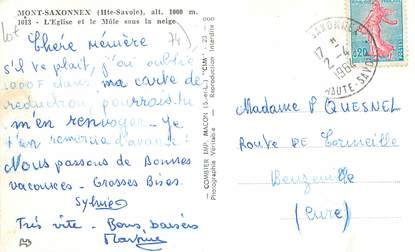 MONT-SAXONNEX (Hte-Savoie), alt. 1000 m.
1013 - L'Eglise et le Môle sous la neige
Lot
74
Chère Mémère
s'il te plait, j'ai oublié
1000F dans ma carte de
reduction, pourrais tu
m'en renvoyer - Je
t'en remercie d'avance.
Nous passons de Bonnes
vacances - Grosses Bises.
Sylvie
Très vite - Bons baisers
Martine
— COMBIER IMP. MACON (S.-et-L.) "CIM" —
Photographie Véritable - Reproduction Interdite
17 H
2-4
1964
HAUTE-SAVOIE
0,20
Madame P QUESNEL
Route de
(Eure)